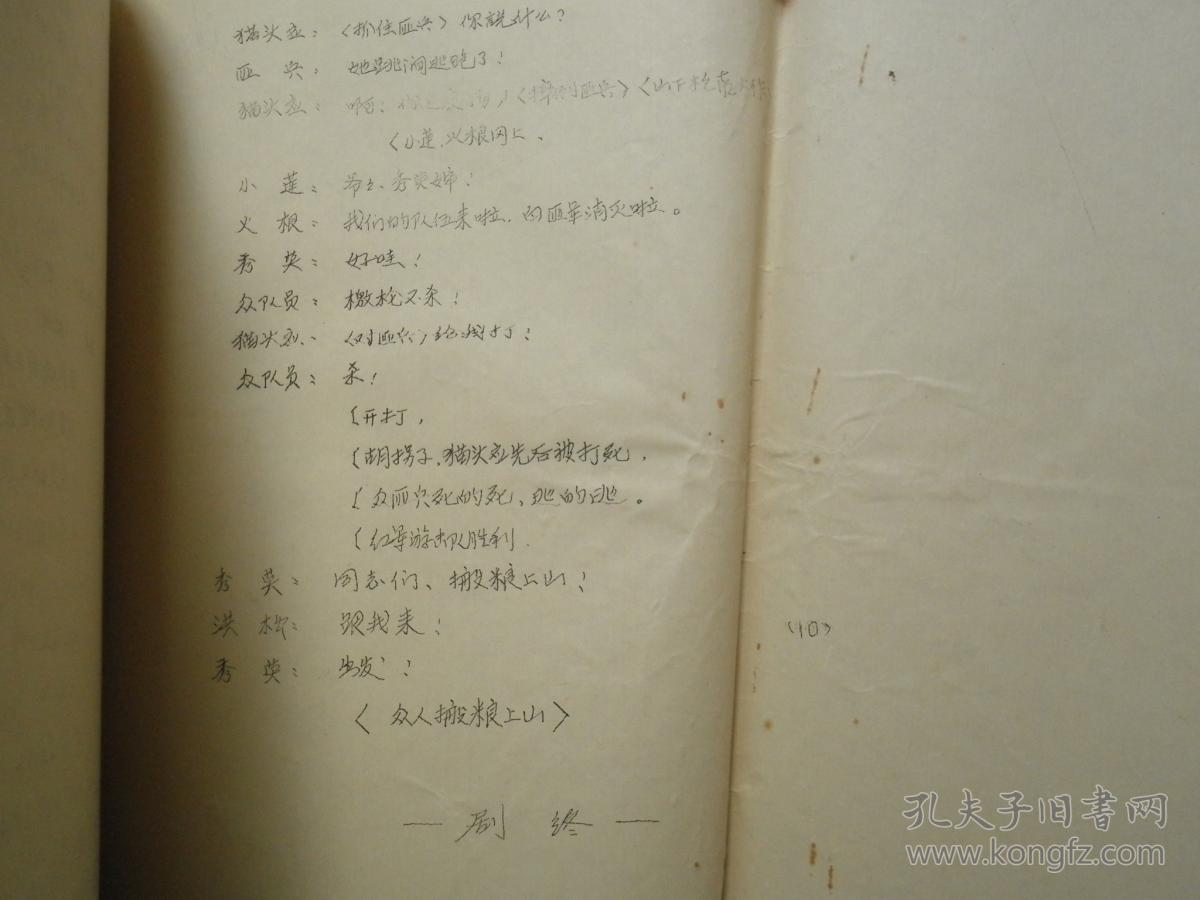 猫头应：〈抓住匪兵〉你說什么？
匪兵：她跳涧逃跑了！
猫头应：啊！〈摔倒匪兵〉〈山下枪声大作
〈小莲、火根同上、
小莲：爷爷、秀英婶！
火根：我们的队伍来啦、白匪军消灭啦。
秀英：好哇！
众队员：檄枪不杀！
猫头应：〈对匪兵〉给我打！
众队员：杀！
〔开打，
〔胡拐子、猫头应先后被打死，
〔众匪兵死的死、逃的逃。
〔红军游击队胜利.
秀英：同志们、搬粮上山！
洪松：跟我来！
秀英：出发！
〈众人搬粮上山〉
— 剧终 —
〈10〉
孔夫子旧书网
www.kongfz.com